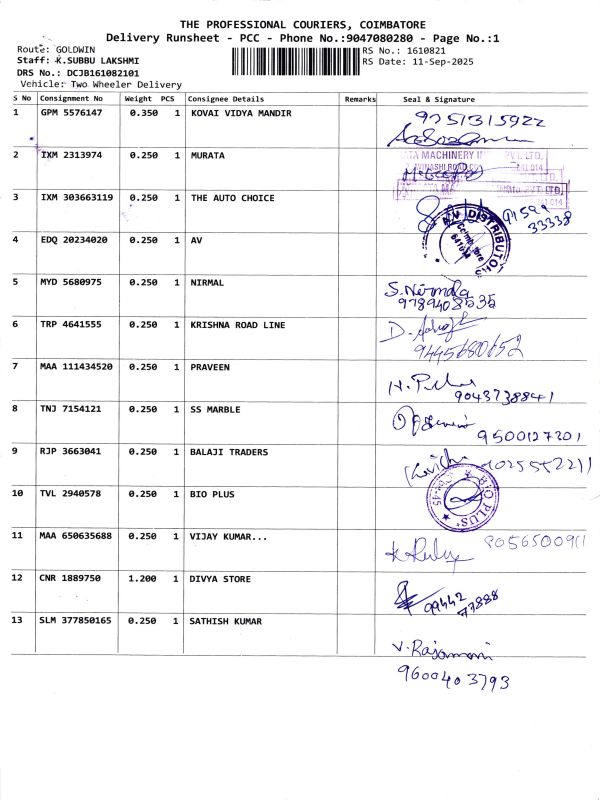 THE PROFESSIONAL COURIERS, COIMBATORE
Delivery Runsheet - PCC - Phone No.:9047080280 - Page No.:1
Route: GOLDWIN
RS No.: 1610821
Staff: K.SUBBU LAKSHMI
RS Date: 11-Sep-2025
DRS No.: DCJB161082101
Vehicle: Two Wheeler Delivery
S No Consignment No Weight PCS Consignee Details Remarks Seal & Signature
1 GPM 5576147 0.350 1 KOVAI VIDYA MANDIR 9751315922
2 IXM 2313974 0.250 1 MURATA
MACHINERY PVT. LTD.
3 IXM 303663119 0.250 1 THE AUTO CHOICE 94599
33338
DISTRIBUTORS
Coimbatore
4 EDQ 20234020 0.250 1 AV
5 MYD 5680975 0.250 1 NIRMAL S. Nirmala
9789408535
6 TRP 4641555 0.250 1 KRISHNA ROAD LINE
9445680652
7 MAA 111434520 0.250 1 PRAVEEN
9043738841
8 TNJ 7154121 0.250 1 SS MARBLE
9500127201
9 RJP 3663041 0.250 1 BALAJI TRADERS
10 TVL 2940578 0.250 1 BIO PLUS
BIO PLUS
11 MAA 650635688 0.250 1 VIJAY KUMAR... 9056500911
12 CNR 1889750 1.200 1 DIVYA STORE
99442
77888
13 SLM 377850165 0.250 1 SATHISH KUMAR
V. Rajamani
9600403793